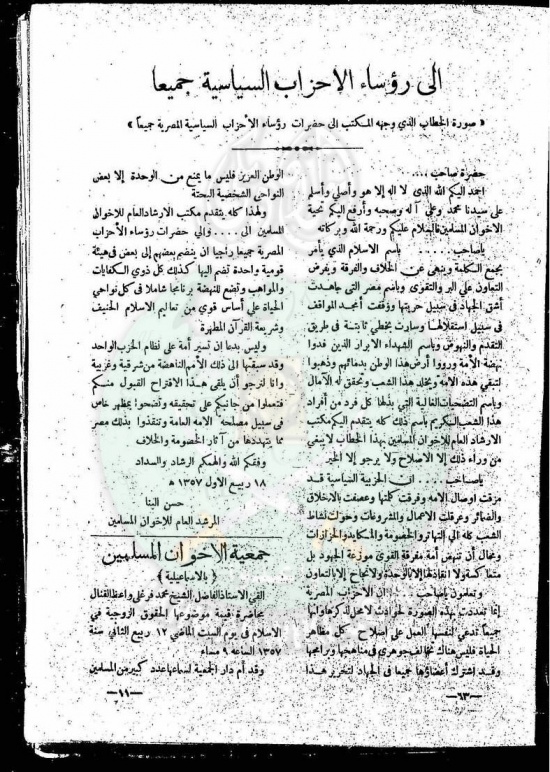 الى رؤساء الاحزاب السياسية جميعا
« صورة الخطاب الذي وجهه المكتب الى حضرات رؤساء الأحزاب السياسية المصرية جميعاً »
حضرة صاحب ....
احمد اليكم الله الذى لا اله إلا هو وأصلي وأسلم
على سيدنا محمد وعلى آله وصحبه وأرفع اليكم تحية
الاخوان المسلمين فالسلام عليكم ورحمة الله وبركاته
ياصاحب ...... باسم الاسلام الذي يأمر
بجمع الكلمة وينهى عن الخلاف والفرقة ويفرض
التعاون على البر والتقوى وباسم مصر التى جاهدت
أشق الجهاد فى سبيل حريتها ووقفت أمجد المواقف
فى سبيل استقلالها وسارت بخطي ثابتة فى طريق
التقدم والنهوض وباسم الشهداء الابرار الذين فدوا
نهضة الأمة ورووا أرض هذا الوطن بدمائهم وذهبوا
لتبقي هذه الامه ويخلد هذا الشعب وتحقق له الآمال
وباسم التضحيات الغالية التي بذلها كل فرد من أفراد
هذا الشعب الكريم باسم ذلك كله يتقدم اليكم مكتب
الارشاد العام للاخوان المسلمين بهذا الخطاب لا يبغي
من وراء ذلك إلا الاصلاح ولا يرجو إلا الخير
ياصاحب .... ان الحزبية السياسية قد
مزقت اوصال الامه وفرقت كلمتها وعصفت بالاخلاق
والضمائر وعرقلت الاعمال والمشروعات وحولت نشاط
الشعب كله الي التهاتر والخصومة والمكايد والحزازات
ومحال أن تنهض أمة مفرقة القوى موزعة الجهود بل
منقسمة ولا انقاذ لها إلا بالوحدة ولا نجاح إلا بالتعاون
وتعلمون ياصاحب ... ان الاحزاب المصرية
إنما تعددت بهذه الصورة لحوادث لا محل لذكرها وانها
جميعاً تدعي لنفسها العمل على إصلاح كل مظاهر
الحياة فليس هناك تخالف جوهرى فى مناهجها وبرامجها
وقد اشترك أعضاؤها جميعا فى الجهاد لتحرير هذا
—١٣—
الوطن العزيز فليس ما يمنع من الوحدة إلا بعض
النواحي الشخصية البحتة
ولهذا كله يتقدم مكتب الارشاد العام للاخوان
المسلمين الى .... والي حضرات رؤساء الأحزاب
المصرية جميعا راجيا ان ينضم بعضهم إلى بعض فى هيئة
قومية واحدة تضم اليها كذلك كل ذوي الكفايات
والمواهب وتضع للنهضة برنامجا شاملا فى كل نواحي
الحياة على أساس قوي من تعاليم الاسلام الحنيف
وشريعة القرآن المطهرة
وليس بدعا ان تسير أمة على نظام الحزب الواحد
وقد سبقتها الى ذلك الأمم الناهضة من شرقية وغربية
وانا لنرجو أن يلقى هذا الاقتراح القبول منكم
فتعملوا من جانبكم على تحقيقه وتضحوا بمظهر خاص
فى سبيل مصلحة الامه العامة وتنقذوا بذلك مصر
مما يتهددها من آثار الخصومة والخلاف
وفقكم الله والهمكم الرشاد والسداد
١٨ ربيع الاول ١٣٥٧ ه
حسن البنا
المرشد العام للاخوان المسلمين
جمعية الاخوان المسلمين
﴿ بالاسماعيلية ﴾
القى الاستاذ الفاضل الشيخ محمد فرغلي واعظ القنال
محاضرة قيمة موضوعها الحقوق الزوجية في
الاسلام فى يوم السبت الماضي ١٢ ربيع الثاني سنة
١٣٥٧ الساعه ٩ مساء
وقد أم دار الجمعية لسماعها عدد كبير من المسلمين
—١١—